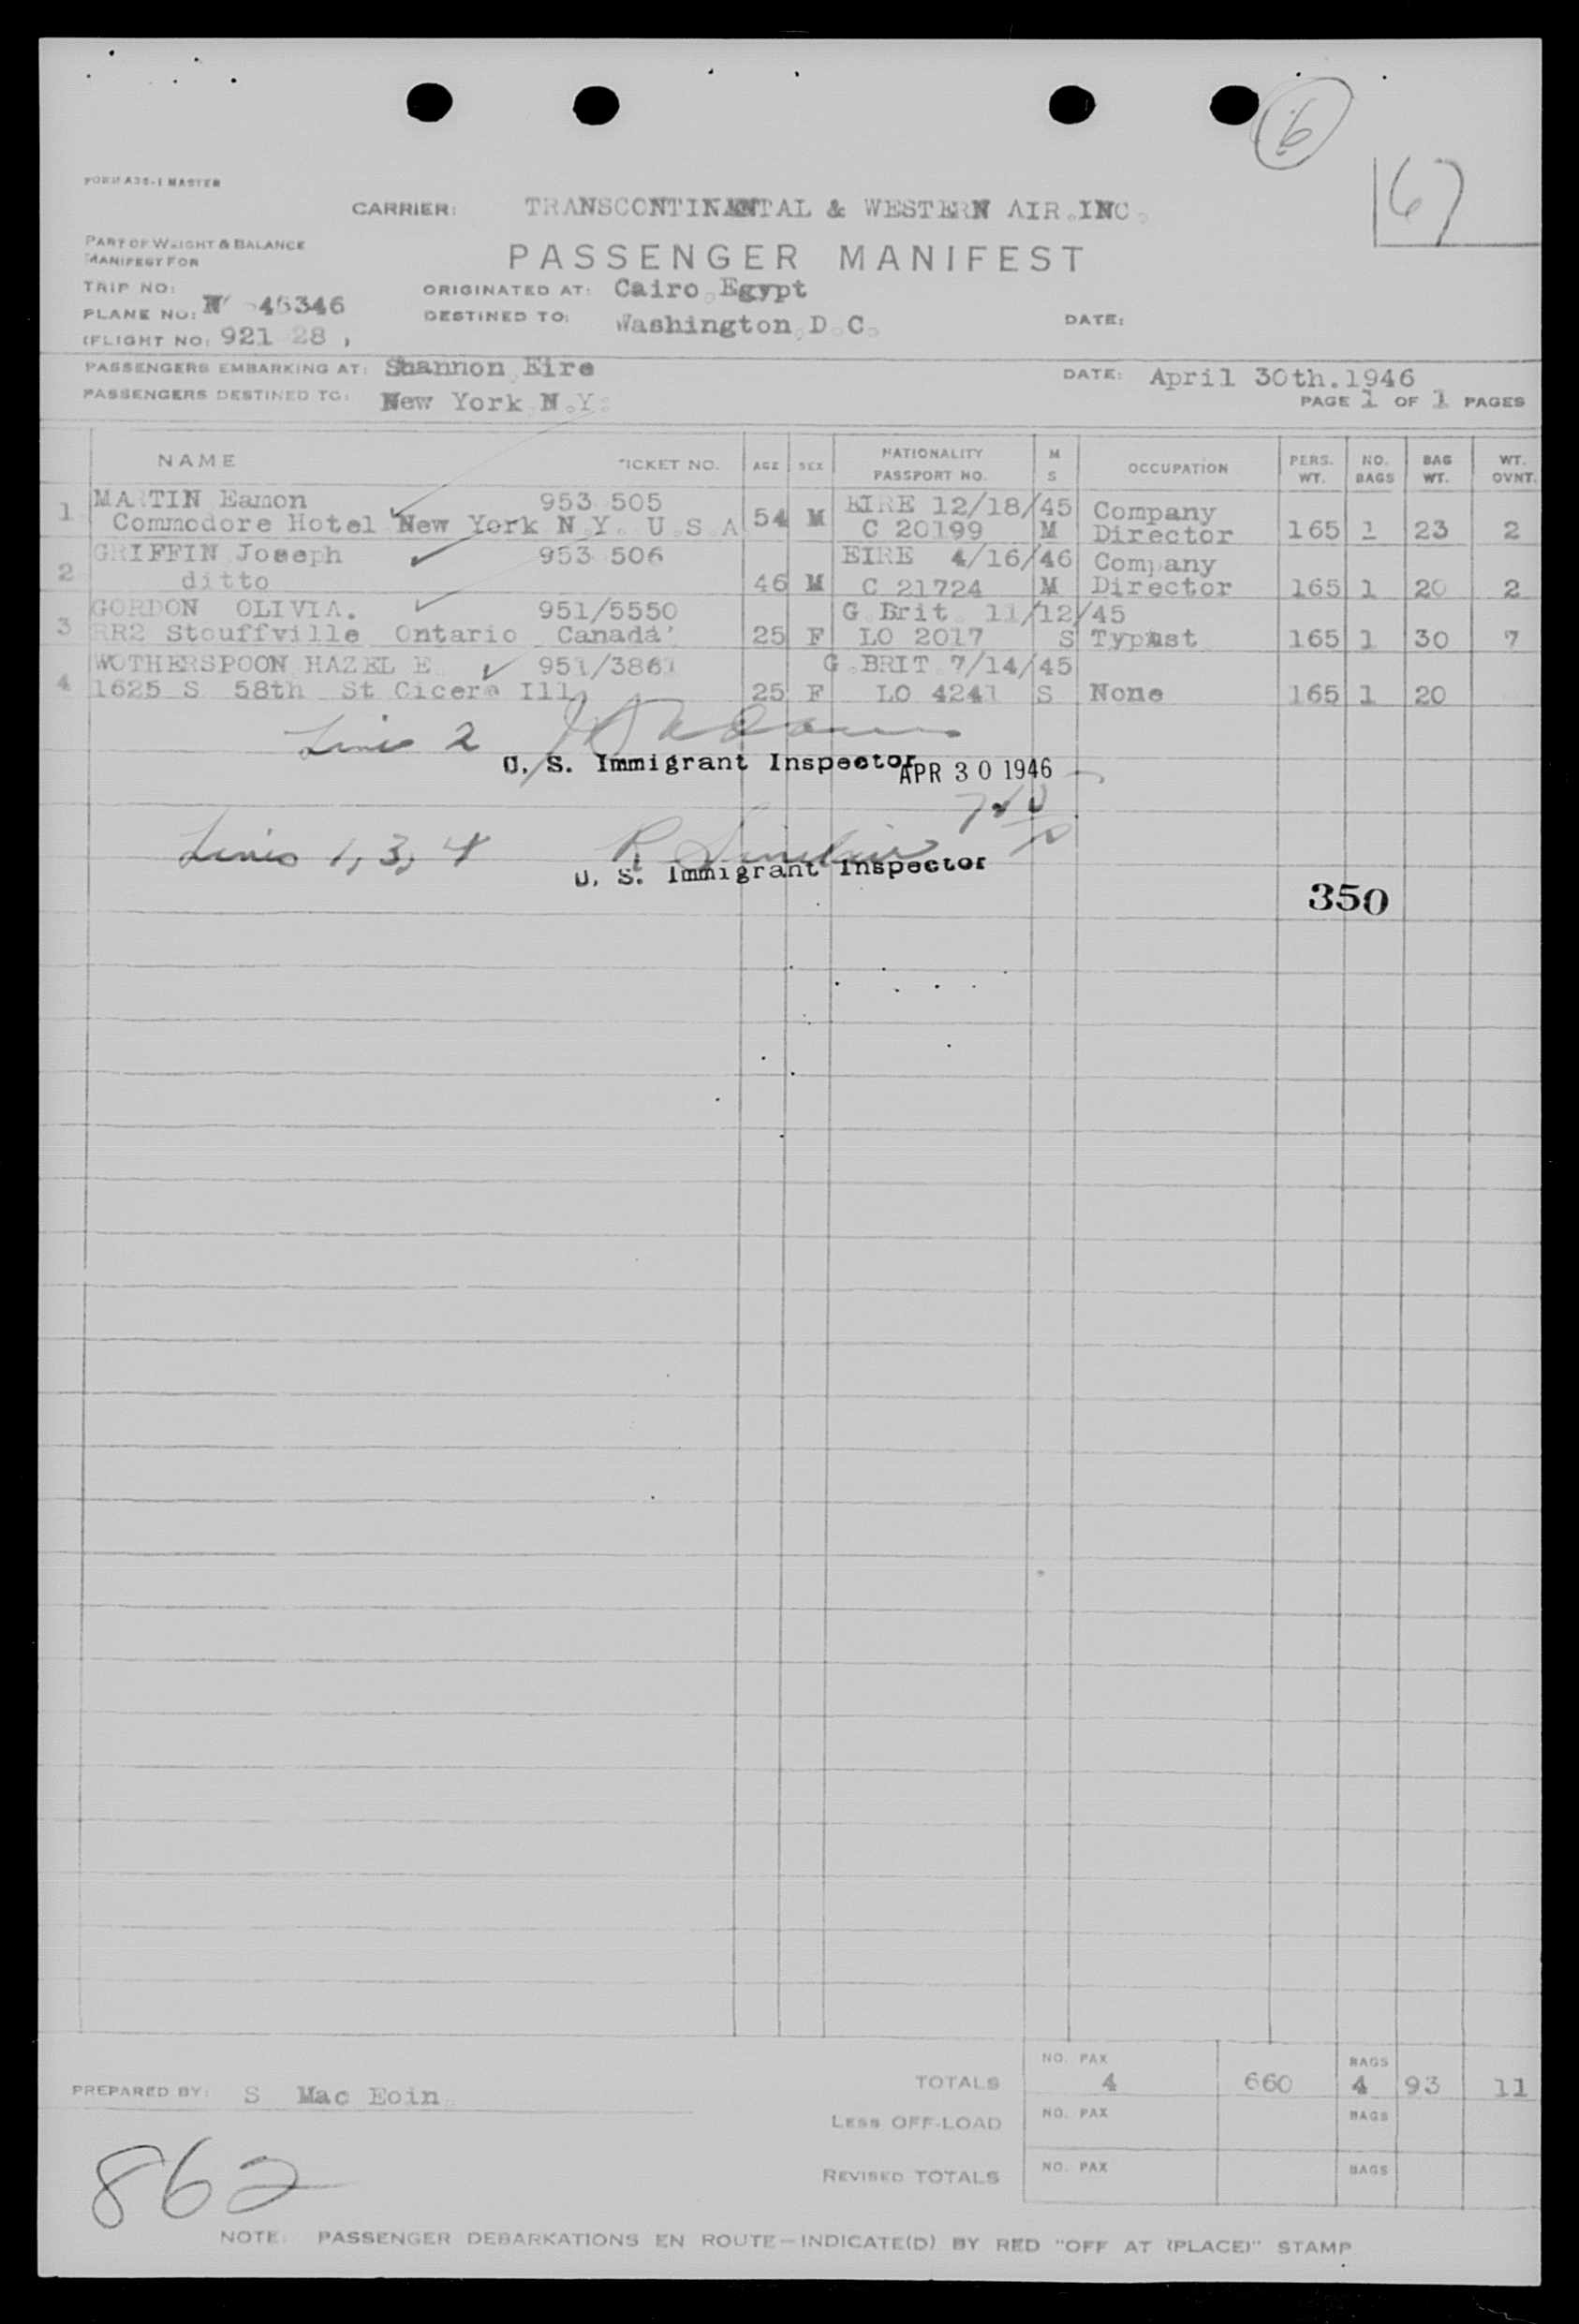 6
FORM A36-1 MASTER
67
CARRIER: TRANSCONTINENTAL & WESTERN AIR.INC.
PART OF WEIGHT & BALANCE
MANIFEST FOR
PASSENGER MANIFEST
TRIP NO:
ORIGINATED AT: Cairo,Egypt
PLANE NO: N 45346
DESTINED TO: Washington,D.C. DATE:
(FLIGHT NO: 921 28 )
PASSENGERS EMBARKING AT: Shannon,Eire DATE: April 30th.1946
PASSENGERS DESTINED TO: New York N.Y. PAGE 1 OF 1 PAGES
NAME TICKET NO. AGE SEX NATIONALITY PASSPORT NO. M S OCCUPATION PERS. WT. NO. BAGS BAG WT. WT. OVNT.
1 MARTIN Eamon 953 505 54 M EIRE 12/18/45 Company
Commodore Hotel New York N.Y. U.S.A C 20199 M Director 165 1 23 2
2 GRIFFIN Joseph 953 506 EIRE 4/16/46 Company
ditto 46 M C 21724 M Director 165 1 20 2
3 GORDON OLIVIA. 951/5550 G.Brit. 11/12/45
RR2 Stouffville Ontario Canada 25 F LO 2017 S Typist 165 1 30 7
4 WOTHERSPOON HAZEL E. 951/3861 G.BRIT 7/14/45
1625 S 58th St Cicero Ill, 25 F LO 4241 S None 165 1 20
Lines 2
U. S. Immigrant Inspector APR 30 1946
Lines 1, 3, 4 R Sinclair
U. S. Immigrant Inspector
350
PREPARED BY: S Mac Eoin
TOTALS NO. PAX 4 660 BAGS 4 93 11
LESS OFF-LOAD NO. PAX BAGS
REVISED TOTALS NO. PAX BAGS
862
NOTE: PASSENGER DEBARKATIONS EN ROUTE—INDICATE(D) BY RED "OFF AT (PLACE)" STAMP